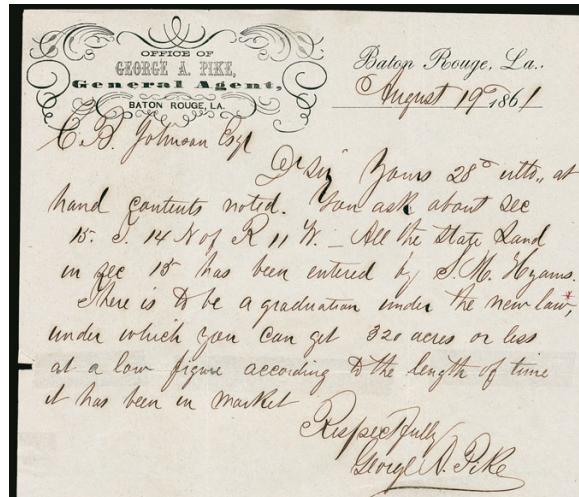 OFFICE OF
GEORGE A. PIKE,
General Agent,
BATON ROUGE, LA.
Baton Rouge, La.,
August 19th 1861
C. B. Johnson Esqr
Dr sir Yours 28th ulto., at
hand contents noted. You ask about sec
15. T. 14 N of R 11 W. _ All the State Land
in sec 15 has been entered by S. M. Hyams.
There is to be a graduation under the new law,*
under which you can get 320 acres or less
at a low figure according to the length of time
it has been in market
Respectfully
George A. Pike